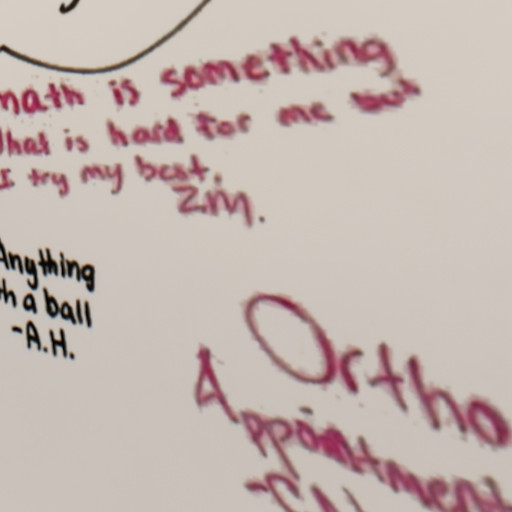 math is something
that is hard for me but
I try my best.
Zm.
Anything
th a ball
-A.H.
Ortho
Appointment